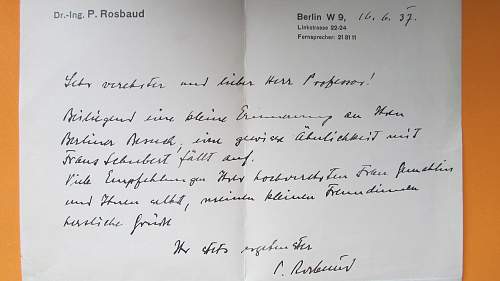 Dr.-Ing. P. Rosbaud
Berlin W 9, 16.6.37.
Linkstrasse 22-24
Fernsprecher: 21 81 11
Sehr verehrter und lieber Herr Professor!
Beiliegend eine kleine Erinnerung an Ihren
Berliner Besuch, eine gewisse Ähnlichkeit mit
Franz Schubert fällt auf.
Viele Empfehlungen Ihrer hochverehrten Frau Gemahlin
und Ihnen selbst, meinen kleinen Freundinnen
herzliche Grüße
Ihr stets ergebenster
P. Rosbaud